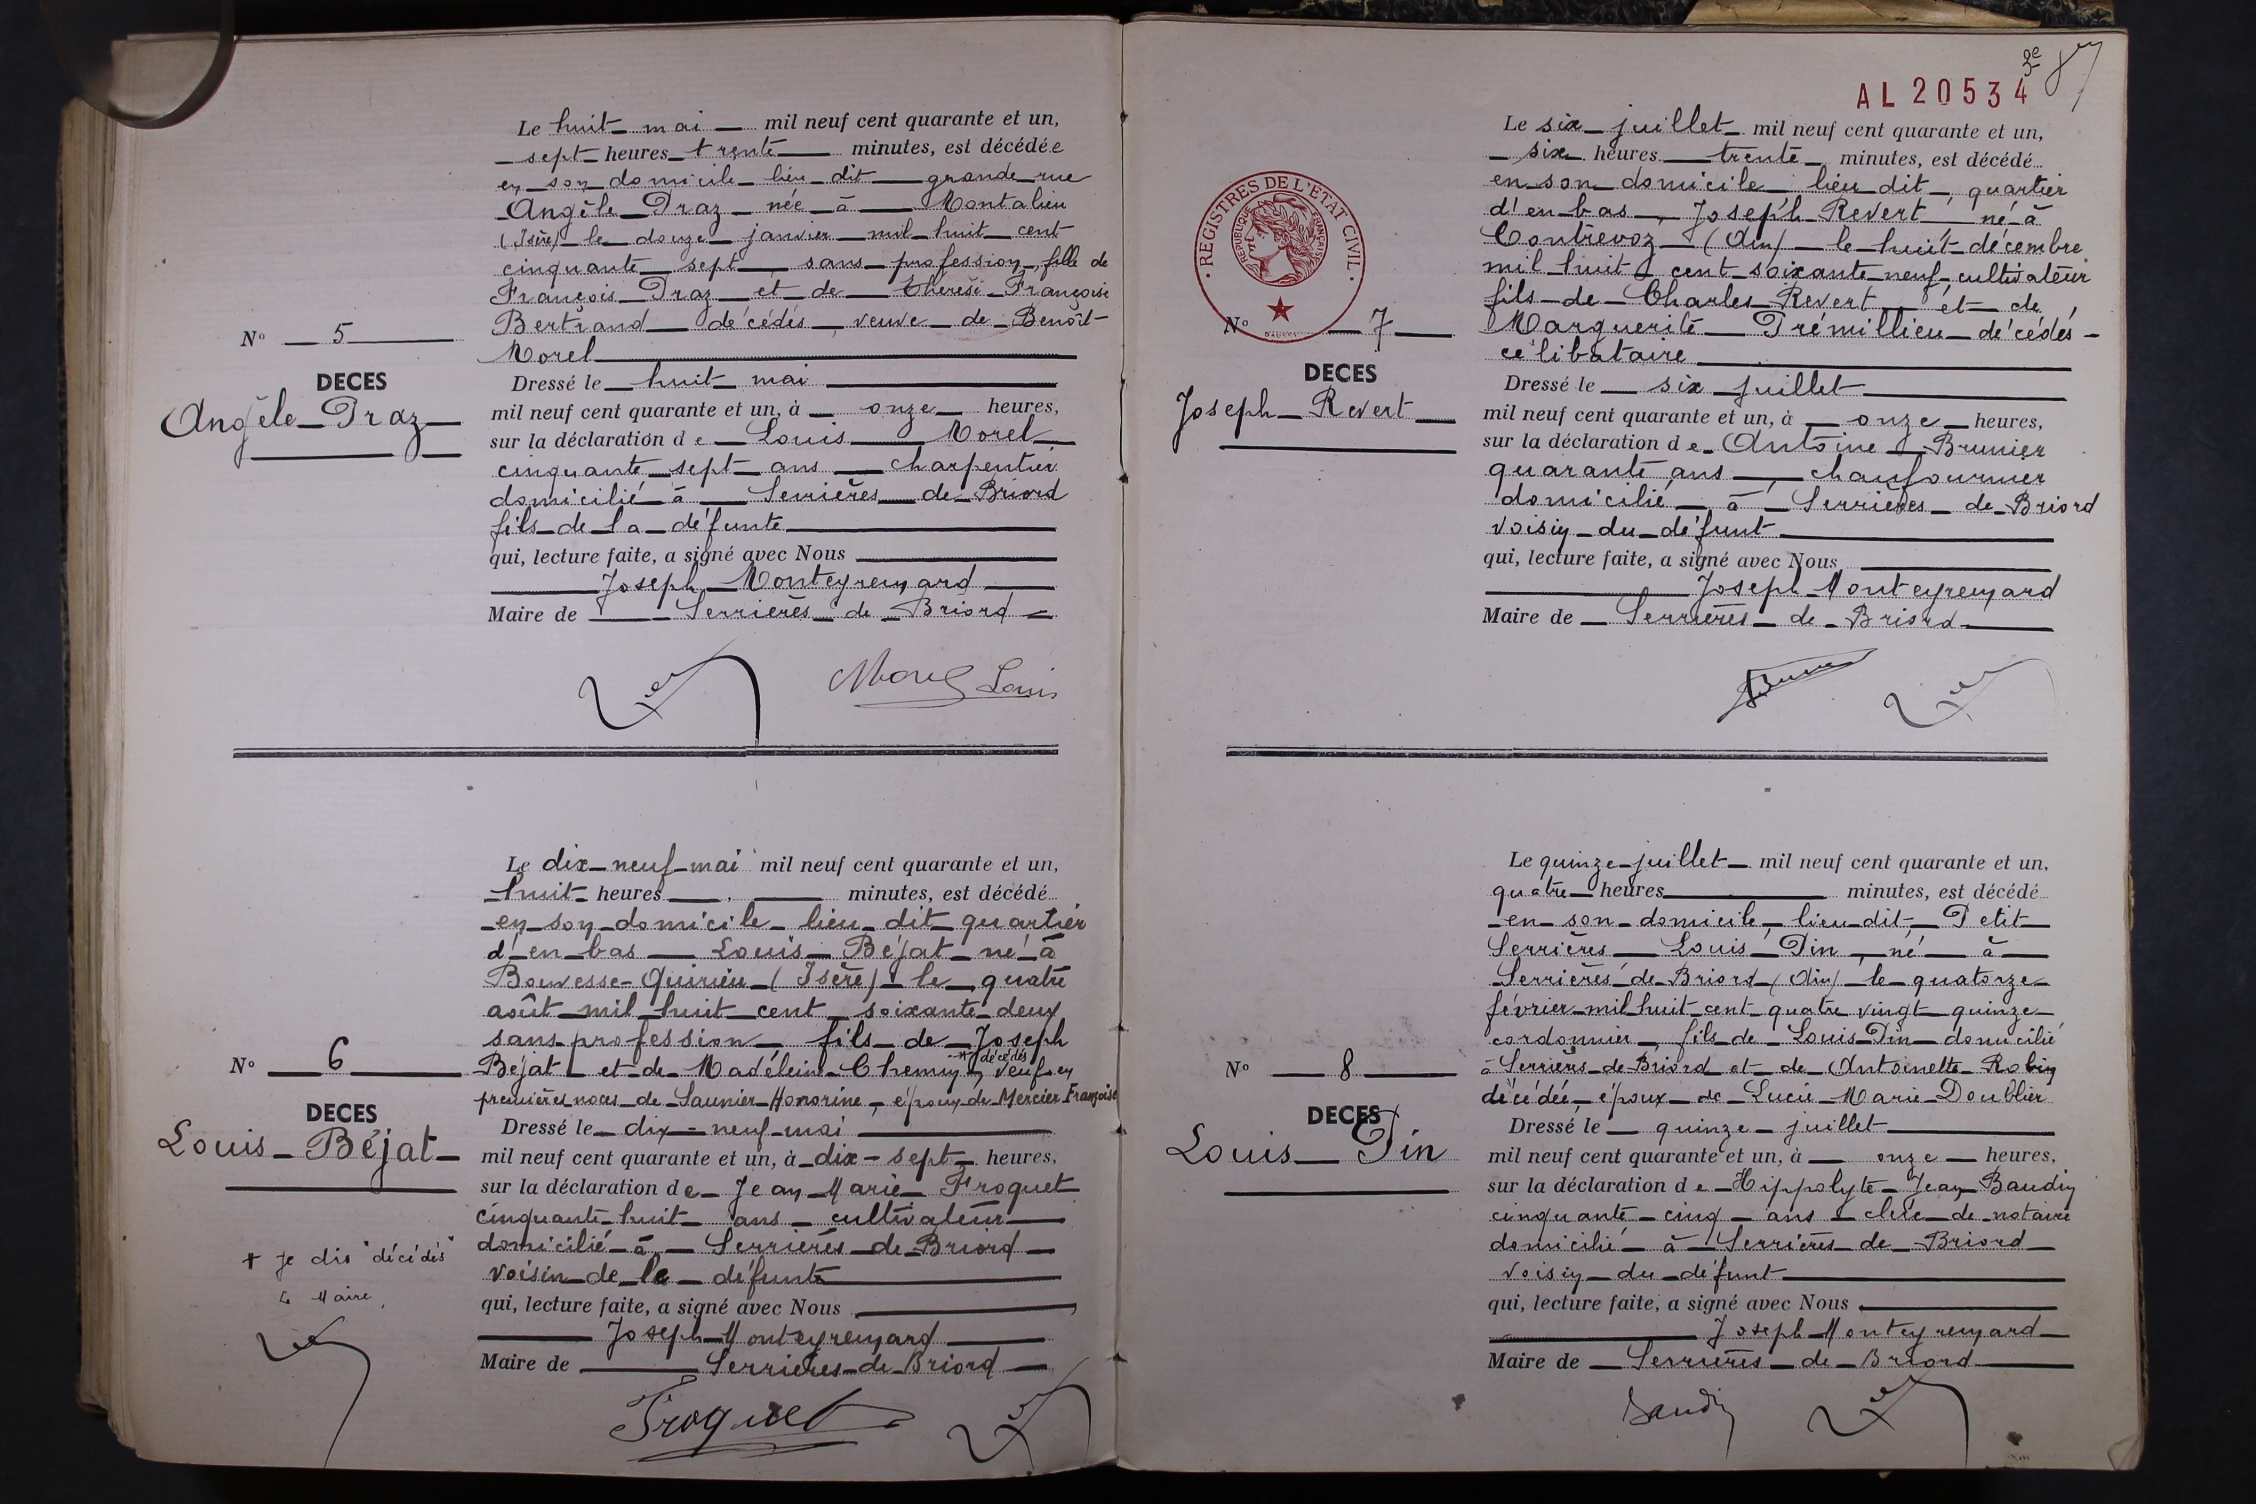 Le huit mai mil neuf cent quarante et un,
sept heures trente minutes, est décédée
en son domicile lieu dit grande rue
Angèle Praz née à Montalieu
(Isère) le douze janvier mil huit cent
cinquante sept, sans profession, fille de
François Praz et de Thérèse Françoise
Bertrand décédés, veuve de Benoît
Morel
No 5
DECES
Angèle Praz
Dressé le huit mai
mil neuf cent quarante et un, à onze heures,
sur la déclaration de Louis Morel
cinquante sept ans charpentier
domicilié à Serrières de Briord
fils de la défunte
qui, lecture faite, a signé avec Nous
Joseph Monteyremard
Maire de Serrières de Briord
Morel Louis
Le dix-neuf mai mil neuf cent quarante et un,
huit heures, minutes, est décédé
en son domicile lieu dit quartier
d'en bas Louis Béjat né à
Bouvesse-Quirieu (Isère) le quatre
août mil huit cent soixante deux
sans profession fils de Joseph
Béjat et de Madeleine Chemin * décédés, veuf en
premières noces de Saunier Honorine, époux de Mercier Françoise
No 6
DECES
Louis Béjat
Dressé le dix-neuf mai
mil neuf cent quarante et un, à dix-sept heures,
sur la déclaration de Jean Marie Froquet
cinquante huit ans cultivateur
domicilié à Serrières de Briord
voisin de le défunt
qui, lecture faite, a signé avec Nous
Joseph Monteyremard
Maire de Serrières de Briord
+ Je dis "décédés"
Le Maire,
Froquet
2e
5
AL 20534
Le six juillet mil neuf cent quarante et un,
six heures trente minutes, est décédé
en son domicile lieu dit, quartier
d'en bas, Joseph Revert né à
Contrevoz (Ain) le huit décembre
mil huit cent soixante neuf, cultivateur
fils de Charles Revert et de
Marguerite Trémillieu décédés
célibataire
REGISTRES DE L'ETAT CIVIL
REPUBLIQUE FRANÇAISE
No 7
DECES
Joseph Revert
Dressé le six juillet
mil neuf cent quarante et un, à onze heures,
sur la déclaration de Antoine Brunier
quarante ans, chaufournier
domicilié à Serrières de Briord
voisin du défunt
qui, lecture faite, a signé avec Nous
Joseph Monteyremard
Maire de Serrières de Briord
Le quinze juillet mil neuf cent quarante et un,
quatre heures minutes, est décédé
en son domicile, lieu dit Petit
Serrières Louis Pin, né à
Serrières de Briord (Ain) le quatorze
février mil huit cent quatre vingt quinze
cordonnier, fils de Louis Pin domicilié
à Serrières de Briord et de Antoinette Robin
décédée, époux de Lucie Marie Doublier
No 8
DECES
Louis Pin
Dressé le quinze juillet
mil neuf cent quarante et un, à onze heures,
sur la déclaration de Hippolyte Jean Baudin
cinquante cinq ans clerc de notaire
domicilié à Serrières de Briord
voisin du défunt
qui, lecture faite, a signé avec Nous
Joseph Monteyremard
Maire de Serrières de Briord
Baudin